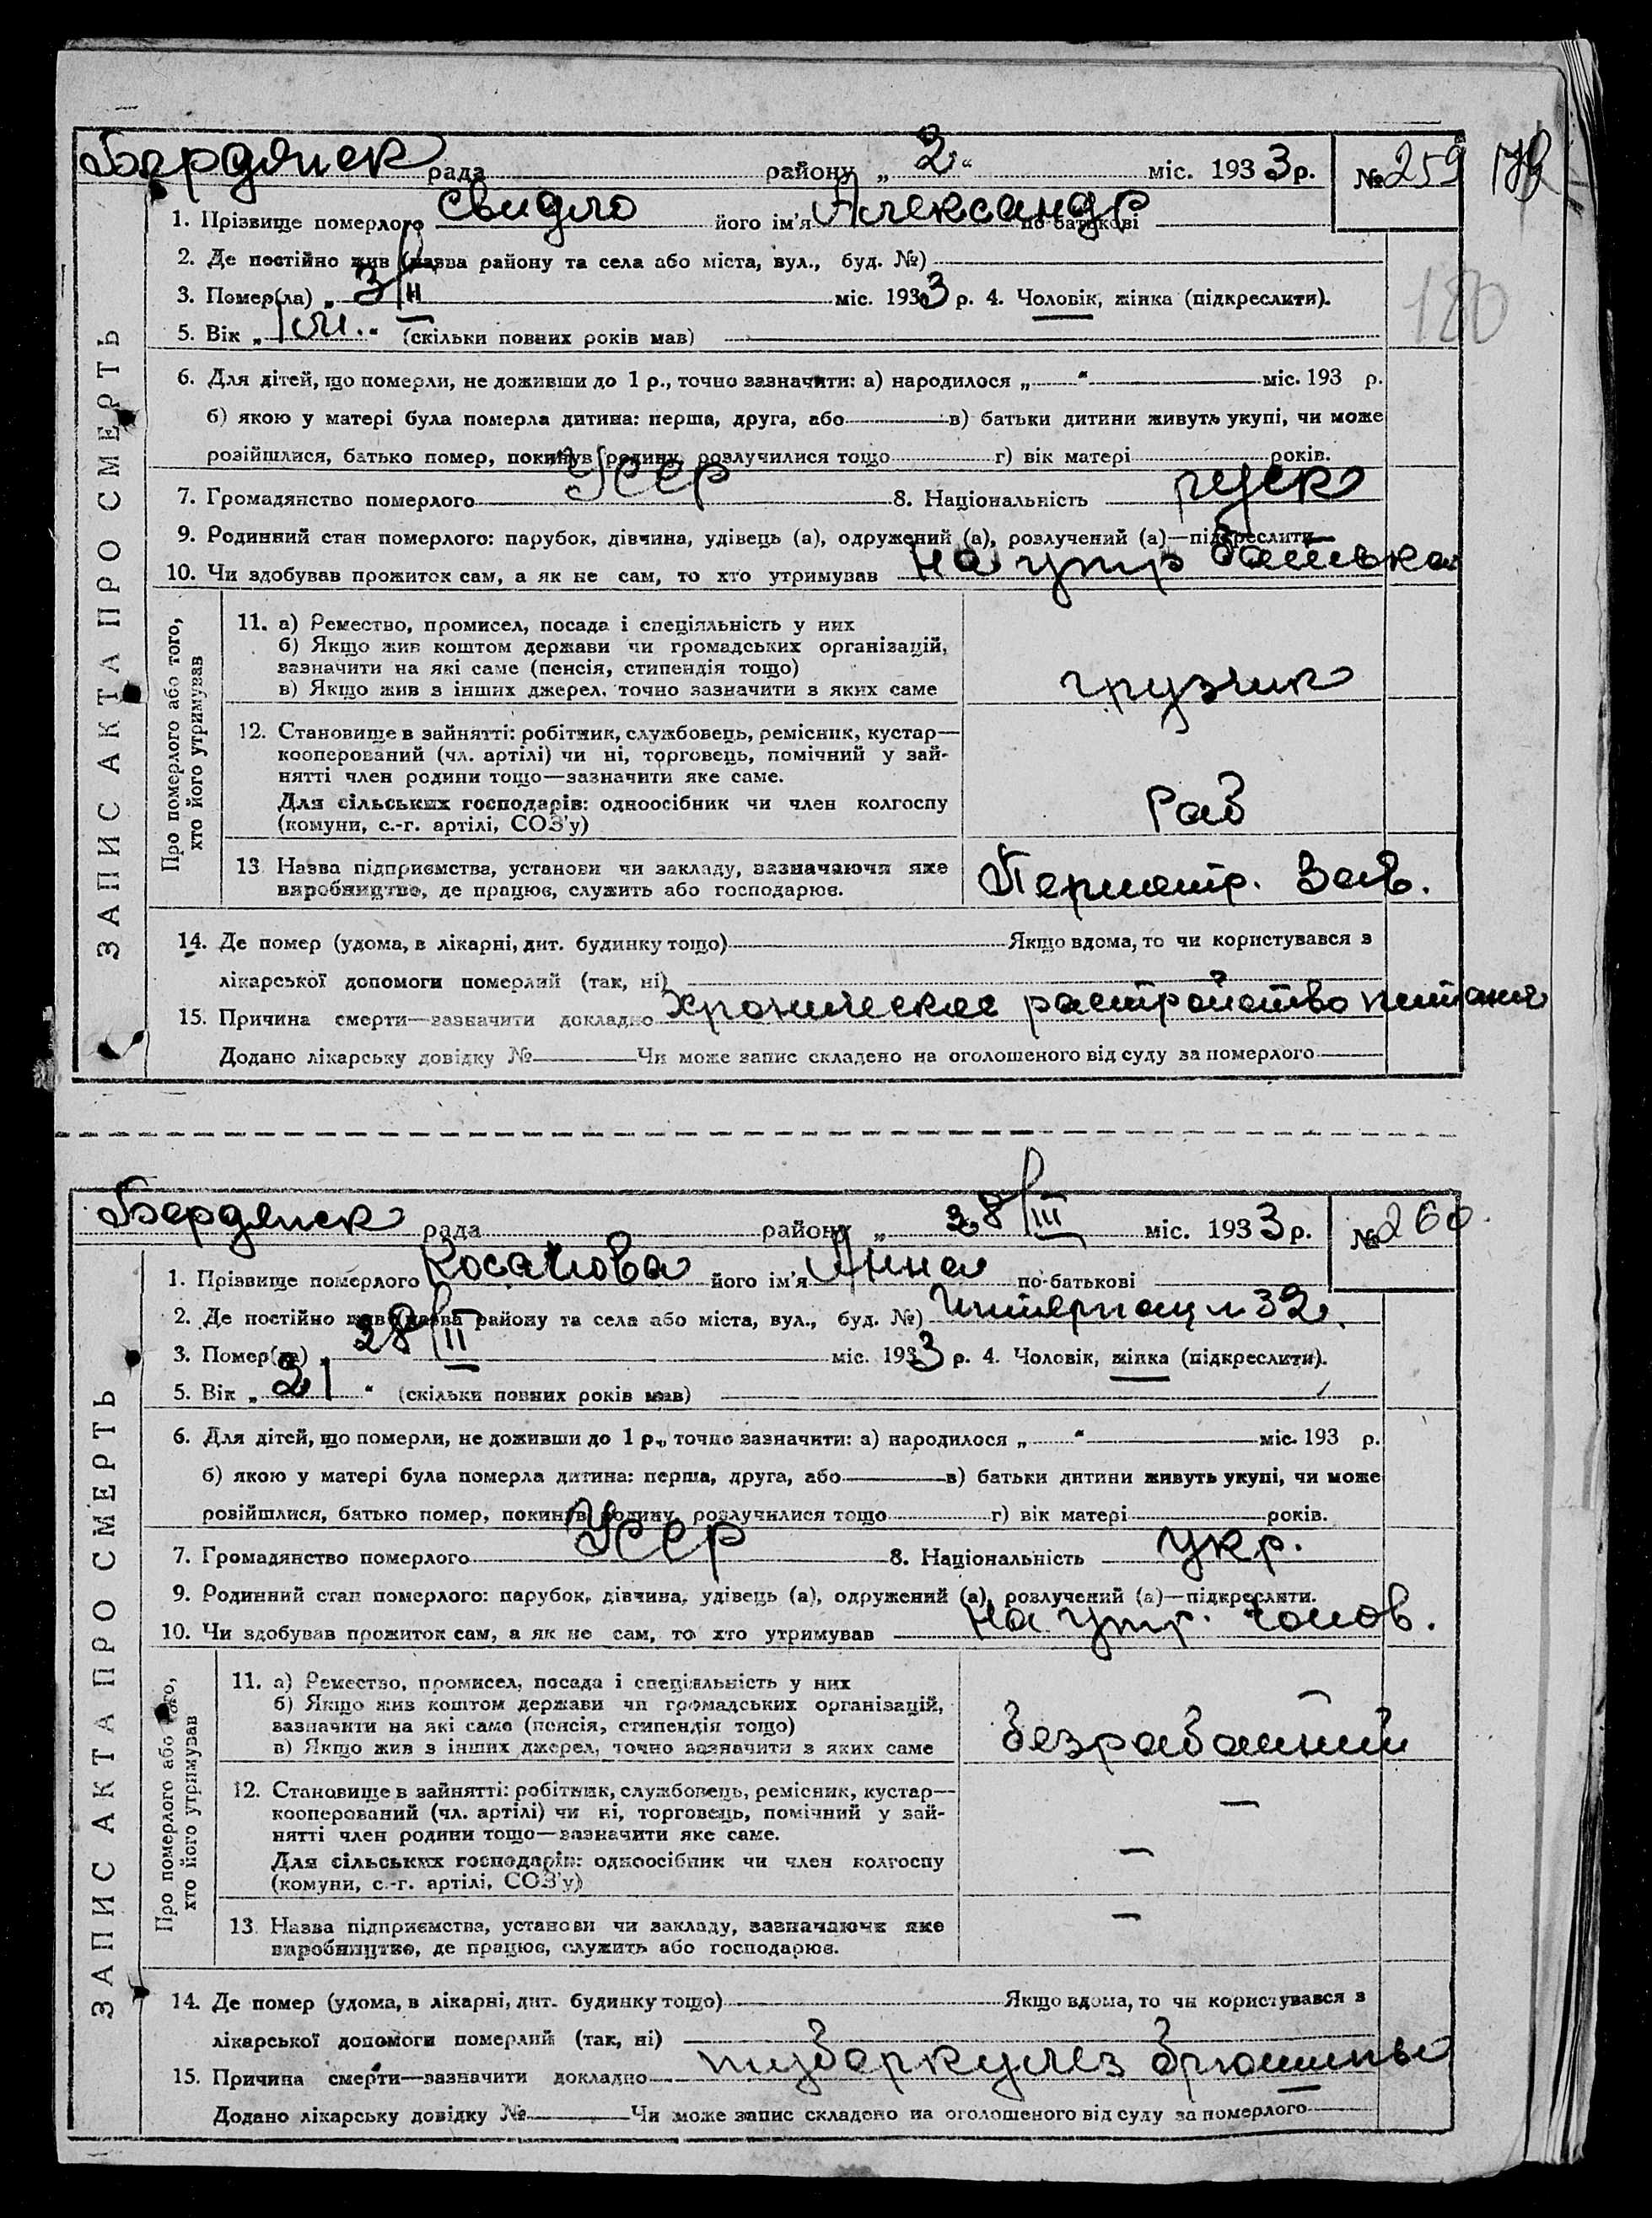 Бердянск рада району „ 2 “ міс. 1933 р. № 259 179
1. Прізвище померлого Свидло його ім'я Александр по-батькові
2. Де постійно жив (назва району та села або міста, вул., буд. №)
180
3. Помер(ла) „ 3/II міс. 1933 р. 4. Чоловік, жінка (підкреслити).
5. Вік „ 1 м. “ (скільки повних років мав)
6. Для дітей, що померли, не доживши до 1 р., точно зазначити: а) народилося „ “ міс. 193 р.
б) якою у матері була померла дитина: перша, друга, або в) батьки дитини живуть укупі, чи може
розійшлися, батько помер, покинув родину, розлучилися тощо г) вік матері років.
7. Громадянство померлого УССР 8. Національність руск
9. Родинний стан померлого: парубок, дівчина, удівець (а), одружений (а), розлучений (а)—підкреслити
10. Чи здобував прожиток сам, а як не сам, то хто утримував на утр батька
ЗАПИС АКТА ПРО СМЕРТЬ
Про померлого або того, хто його утримував
11. а) Ремество, промисел, посада і спеціяльність у них
б) Якщо жив коштом держави чи громадських організацій,
зазначити на які саме (пенсія, стипендія тощо)
в) Якщо жив з інших джерел, точно зазначити з яких саме грузчик
12. Становище в зайнятті: робітник, службовець, ремісник, кустар—
кооперований (чл. артілі) чи ні, торговець, помічний у зай-
нятті член родини тощо—зазначити яке саме.
Для сільських господарів: одноосібник чи член колгоспу
(комуни, с.-г. артілі, СОЗ'у) Раб
13. Назва підприємства, установи чи закладу, зазначаючи яке
виробництво, де працює, служить або господарює. Зав.
14. Де помер (удома, в лікарні, дит. будинку тощо) Якщо вдома, то чи користувався з
лікарської допомоги померлий (так, ні)
15. Причина смерти—зазначити докладно хроническое растройство питания
Додано лікарську довідку № Чи може запис складено на оголошеного від суду за померлого
Бердянск рада району „ 28/III міс. 1933 р. № 260
1. Прізвище померлого Косачова його ім'я Анна по-батькові
2. Де постійно жив (назва району та села або міста, вул., буд. №) Интернац н 32
3. Помер(ла) 28/II міс. 1933 р. 4. Чоловік, жінка (підкреслити).
5. Вік „ 21 “ (скільки повних років мав)
6. Для дітей, що померли, не доживши до 1 р., точно зазначити: а) народилося „ “ міс. 193 р.
б) якою у матері була померла дитина: перша, друга, або в) батьки дитини живуть укупі, чи може
розійшлися, батько помер, покинув родину, розлучилися тощо г) вік матері років.
7. Громадянство померлого УССР 8. Національність укр.
9. Родинний стан померлого: парубок, дівчина, удівець (а), одружений (а), розлучений (а)—підкреслити.
10. Чи здобував прожиток сам, а як не сам, то хто утримував на утр. чолов.
ЗАПИС АКТА ПРО СМЕРТЬ
Про померлого або того, хто його утримував
11. а) Ремество, промисел, посада і спеціяльність у них
б) Якщо жив коштом держави чи громадських організацій,
зазначити на які саме (пенсія, стипендія тощо)
в) Якщо жив з інших джерел, точно зазначити з яких саме безработний
12. Становище в зайнятті: робітник, службовець, ремісник, кустар— —
кооперований (чл. артілі) чи ні, торговець, помічний у зай-
нятті член родини тощо—зазначити яке саме.
Для сільських господарів: одноосібник чи член колгоспу —
(комуни, с.-г. артілі, СОЗ'у)
13. Назва підприємства, установи чи закладу, зазначаючи яке —
виробництво, де працює, служить або господарює.
14. Де помер (удома, в лікарні, дит. будинку тощо) Якщо вдома, то чи користувався з
лікарської допомоги померлий (так, ні)
15. Причина смерти—зазначити докладно туберкулез брюшины
Додано лікарську довідку № Чи може запис складено на оголошеного від суду за померлого